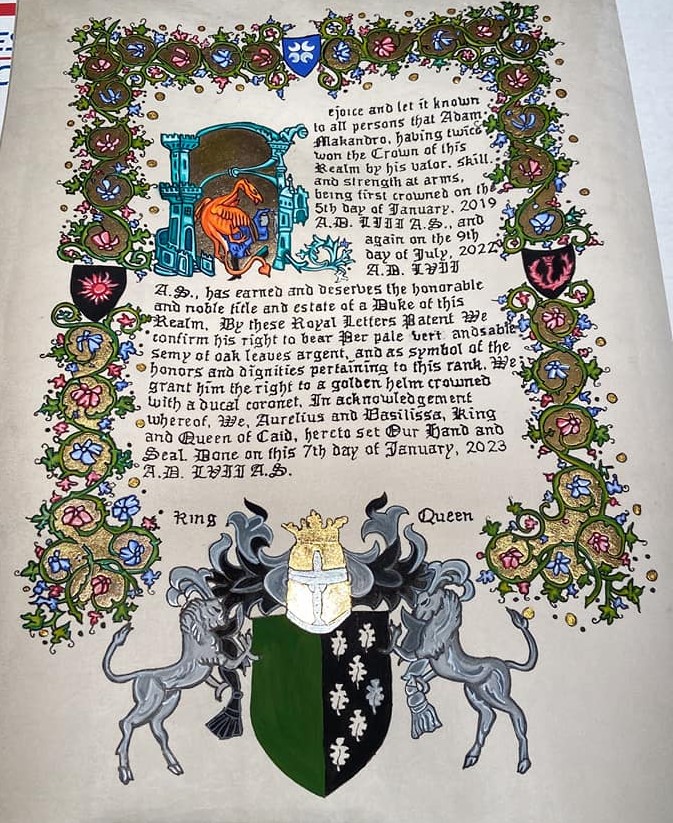 ejoice and let it known
to all persons that Adam
Makandro, having twice
won the Crown of this
Realm by his valor, skill,
and strength at arms,
being first crowned on the
5th day of January, 2019
A.D. LIII A.S., and
again on the 9th
day of July, 2022
A.D. LVII
A.S., has earned and deserves the honorable
and noble title and estate of a Duke of this
Realm. By these Royal Letters Patent We
confirm his right to bear Per pale vert and sable
semy of oak leaves argent, and as symbol of the
honors and dignities pertaining to this rank, We
grant him the right to a golden helm crowned
with a ducal coronet. In acknowledgement
whereof, We, Aurelius and Basilissa, King
and Queen of Caid, hereto set Our Hand and
Seal. Done on this 7th day of January, 2023
A.D. LVII A.S.
King Queen